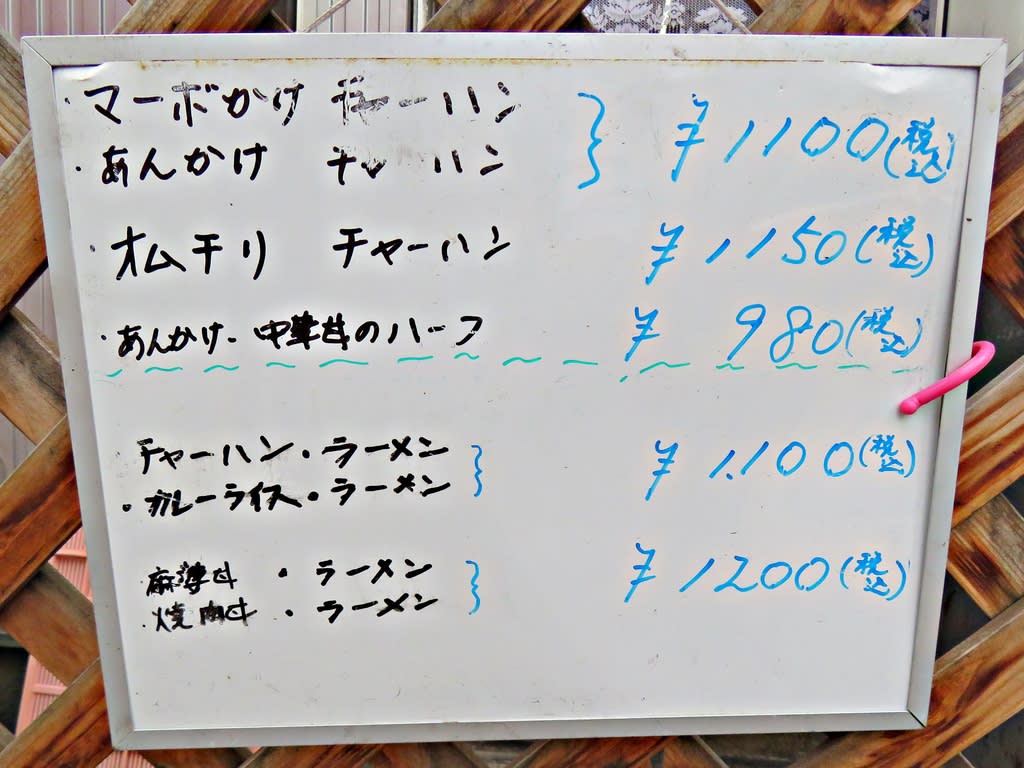 ・マーボかけ チャーハン
・あんかけ チャーハン } ¥1100(税込)
・オムチリ チャーハン ¥1,150(税込)
・あんかけ・中華丼のハーフ ¥ 980(税込)
チャーハン・ラーメン
・カレーライス・ラーメン } ¥1,100(税込)
・麻婆丼 ・ラーメン
焼肉丼 ・ラーメン } ¥1200(税込)